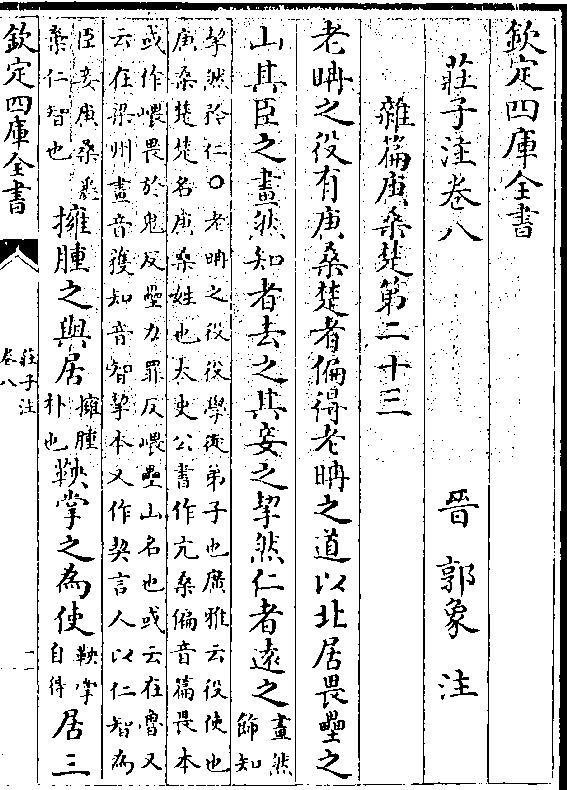 欽定四庫全書
莊子注卷八
晉 郭象 注
雜篇庚桑楚第二十三
老聃之役有庚桑楚者偏得老聃之道以北居畏壘之
山其臣之畫然知者去之其妾之挈然仁者遠之畫然
飾知
挈然矜仁○老聃之役役學徒弟子也廣雅云役使也
庚桑楚楚名庚桑姓也太史公書作亢桑偏音篇畏本
或作喂畏於鬼反壘力罪反喂壘山名也或云在魯又
云在梁州畫音獲知音智挈本又作契言人以仁智為
臣妾庚桑悉
棄仁智也
擁腫之與居擁腫
朴也
鞅掌之為使鞅掌
自得
居三
欽定四庫全書
莊子注
卷八
一